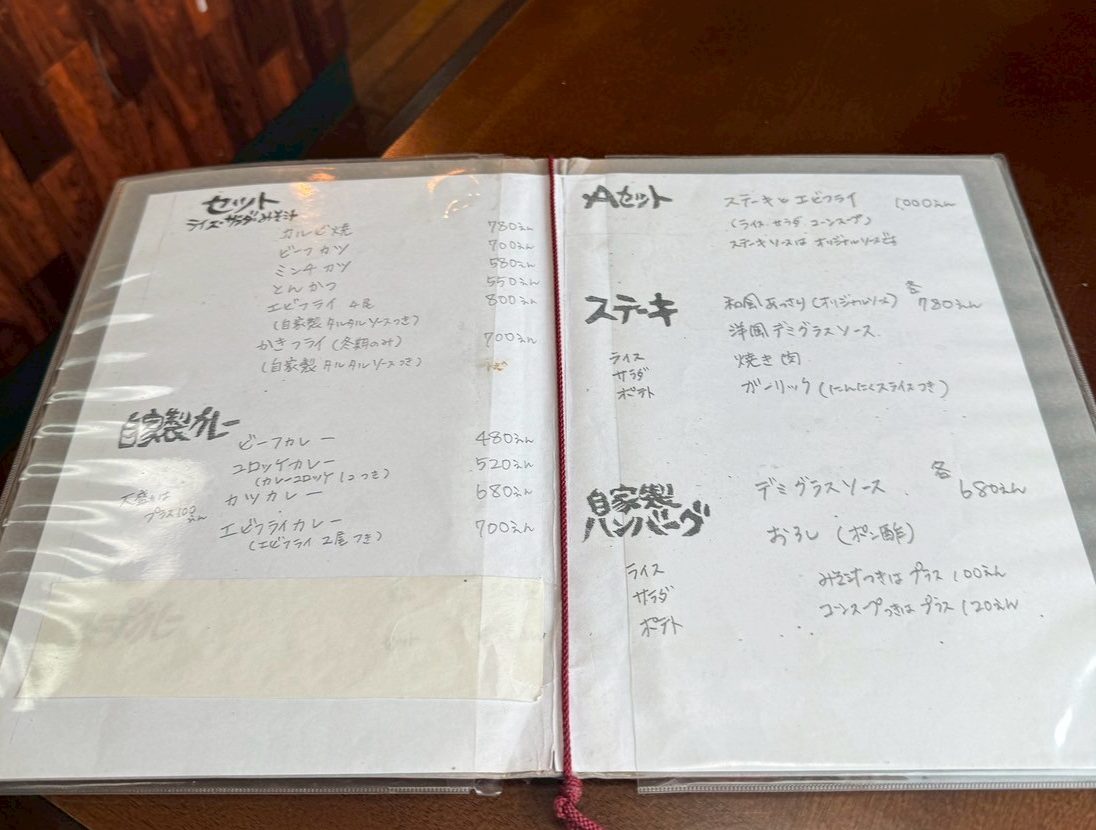 セット
ライス・サラダ・みそ汁
カルビ焼 780えん
ビーフカツ 700えん
ミンチカツ 580えん
とんかつ 550えん
エビフライ 4尾 800えん
(自家製タルタルソースつき)
かきフライ(冬期のみ) 700えん
(自家製タルタルソースつき)
自家製カレー
ビーフカレー 480えん
コロッケカレー 520えん
(カレーコロッケ1コつき)
カツカレー 680えん
大盛りは
プラス100えん
エビフライカレー 700えん
(エビフライ2尾つき)
Aセット
ステーキとエビフライ 1000えん
(ライス サラダ コーンスープ)
ステーキソースはオリジナルソースです
ステーキ
和風あっさり(オリジナルソース) 各780えん
洋風デミグラスソース
ライス
焼き肉
サラダ
ポテト
ガーリック(にんにくスライスつき)
自家製
ハンバーグ
デミグラスソース 各680えん
おろし(ポン酢)
ライス
サラダ
ポテト
みそ汁つきはプラス100えん
コーンスープつきはプラス120えん